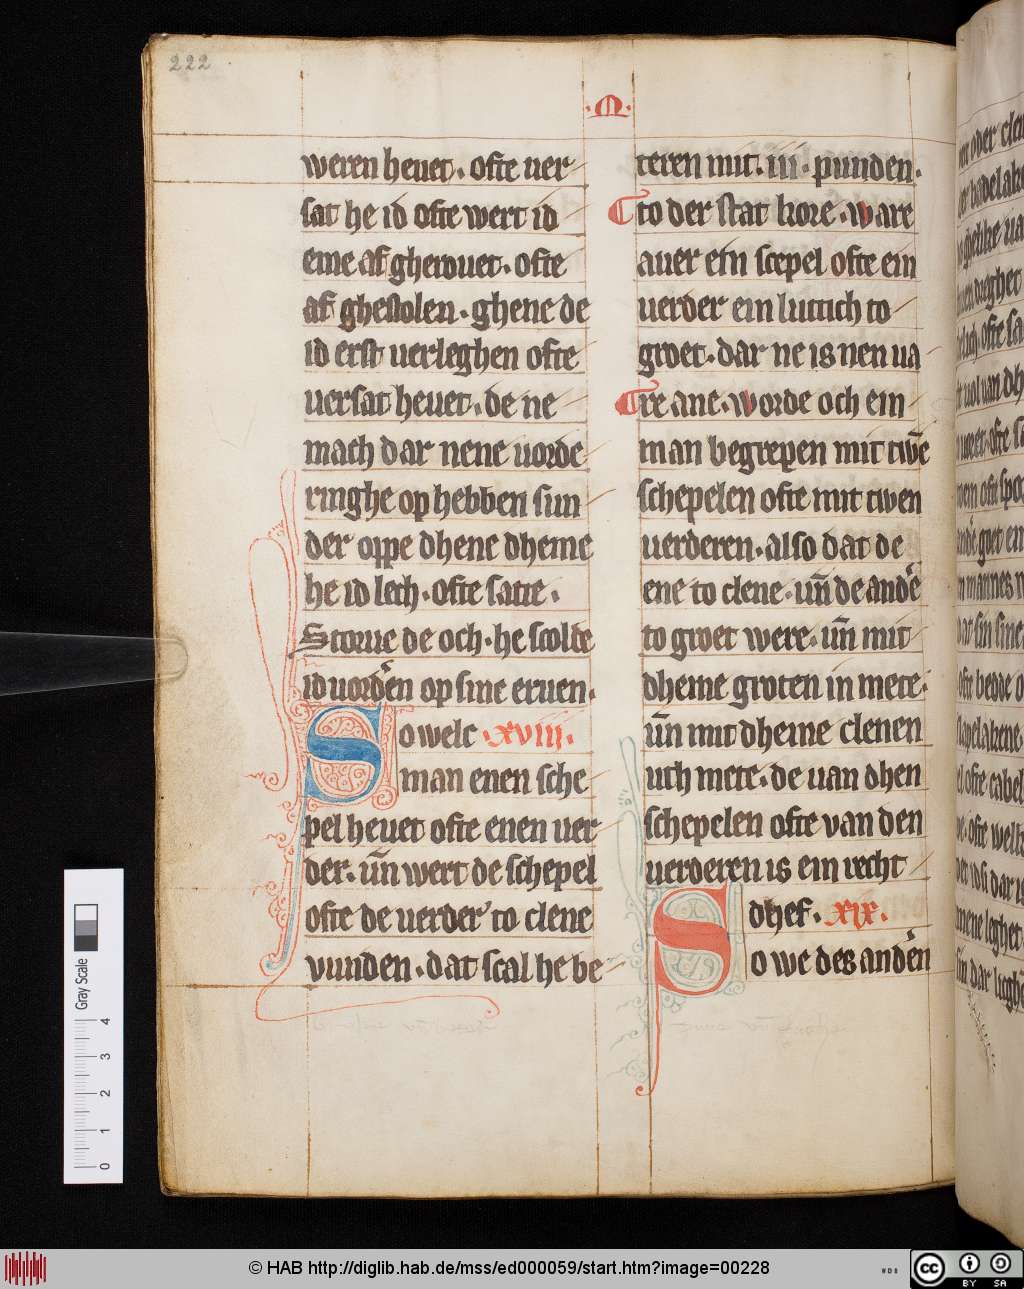 222
·M·
weren heuet · ofte uer
sat he id ofte wert id
eme af gherouet · ofte
af ghestolen · ghene de
id erst uerleghen ofte
uersat heuet · de ne
mach dar nene uorde
ringhe op hebben sun
der oppe dhene dheme
he id lech · ofte satte ·
Storue de och · he scolde
id uorđen op sine eruen ·
So welc · XVIII ·
man enen sche
pel heuet ofte enen uer
der · un̄ wert de schepel
ofte de uerder' to clene
vunden · dat scal he be
teren mit · iii · punden ·
to der stat kore · ware
auer ein scepel ofte ein
uerder ein luttich to
groet · dar ne is nen ua
re ane · worde och ein
man begrepen mit twē
schepelen ofte mit twen
uerderen · also dat de
ene to clene · un̄ de and'e
to groet were · un̄ mit
dheme groten in mete ·
un̄ mit dheme clenen
uth mete · de uan dhen
schepelen ofte van den
uerderen is ein recht
dhef · XIX ·
So we des and'en
Gray Scale
0 1 2 3 4
© HAB http://diglib.hab.de/mss/ed000059/start.htm?image=00228
WDB
cc BY SA